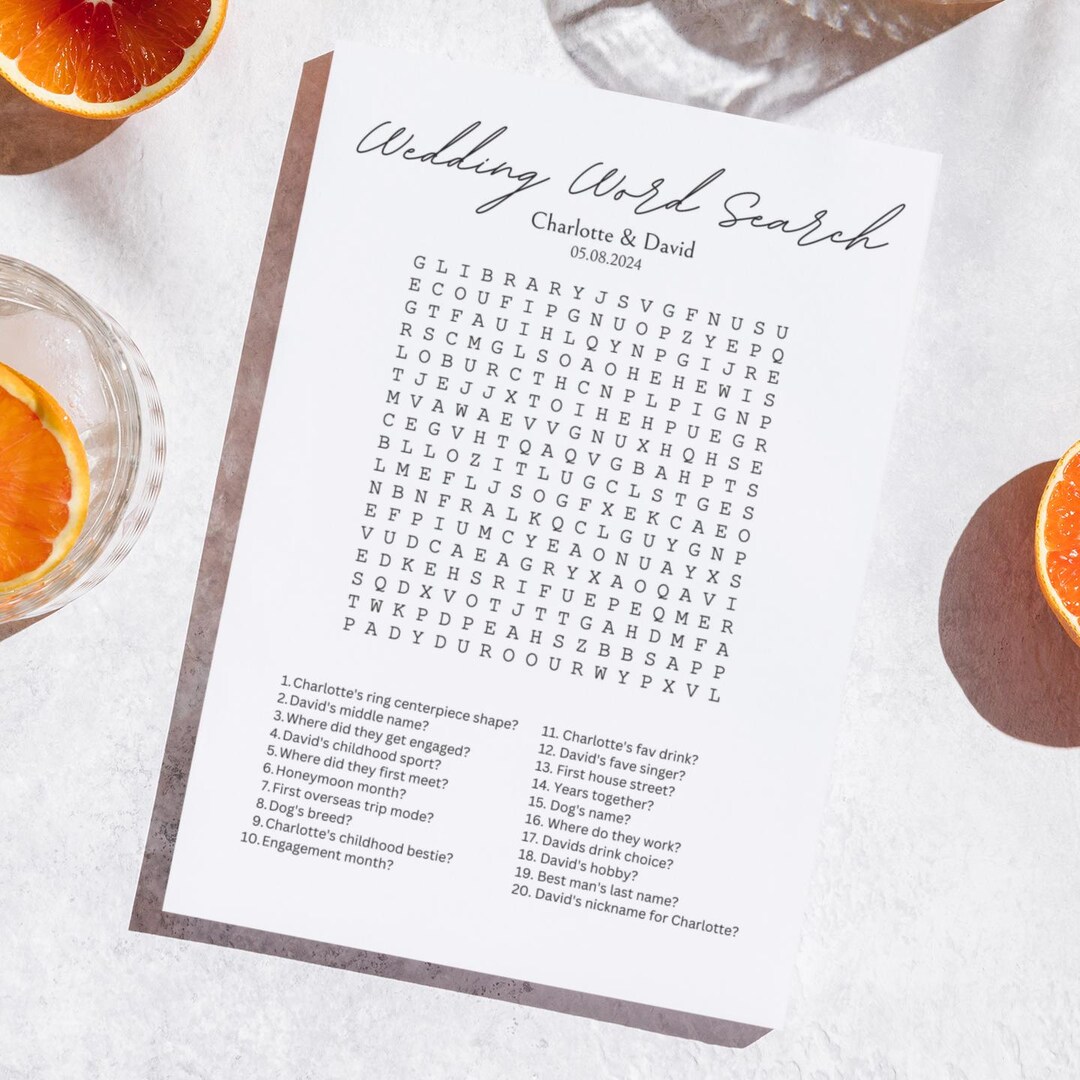 Wedding Word Search
Charlotte & David
05.08.2024
G L I B R A R Y J S V G F N U S U
E C O U F I P G N U O P Z Y E P Q
G T F A U I H L Q Y N P G I J R E
R S C M G L S O A O H E H E W I S
L O B U R C T H C N P L P I G N P
T J E J J X T O I H E H P U E G R
M V A W A E V V G N U X H Q H S E
C E G V H T Q A Q V G B A H P T S
B L L O Z I T L U G C L S T G E S
L M E F L J S O G F X E K C A E O
N B N F R A L K Q C L G U Y G N P
E F P I U M C Y E A O N U A Y X S
V U D C A E A G R Y X A O Q A V I
E D K E H S R I F U E P E Q M E R
S Q D X V O T J T T G A H D M F A
T W K P D P E A H S Z B B S A P P
P A D Y D U R O O U R W Y P X V L
1. Charlotte's ring centerpiece shape?
2. David's middle name?
3. Where did they get engaged?
4. David's childhood sport?
5. Where did they first meet?
6. Honeymoon month?
7. First overseas trip mode?
8. Dog's breed?
9. Charlotte's childhood bestie?
10. Engagement month?
11. Charlotte's fav drink?
12. David's fave singer?
13. First house street?
14. Years together?
15. Dog's name?
16. Where do they work?
17. Davids drink choice?
18. David's hobby?
19. Best man's last name?
20. David's nickname for Charlotte?